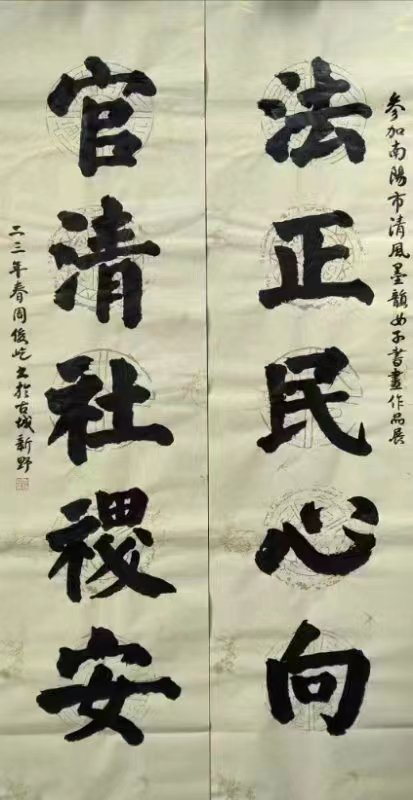 参加南陽市清風墨韻女子書畫作品展
法正民心向
官清社稷安
二三年春周俊屹书於古城新野